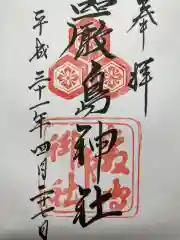 奉拝
嚴島神社
平成二十一年四月二十七日
嚴島
御社